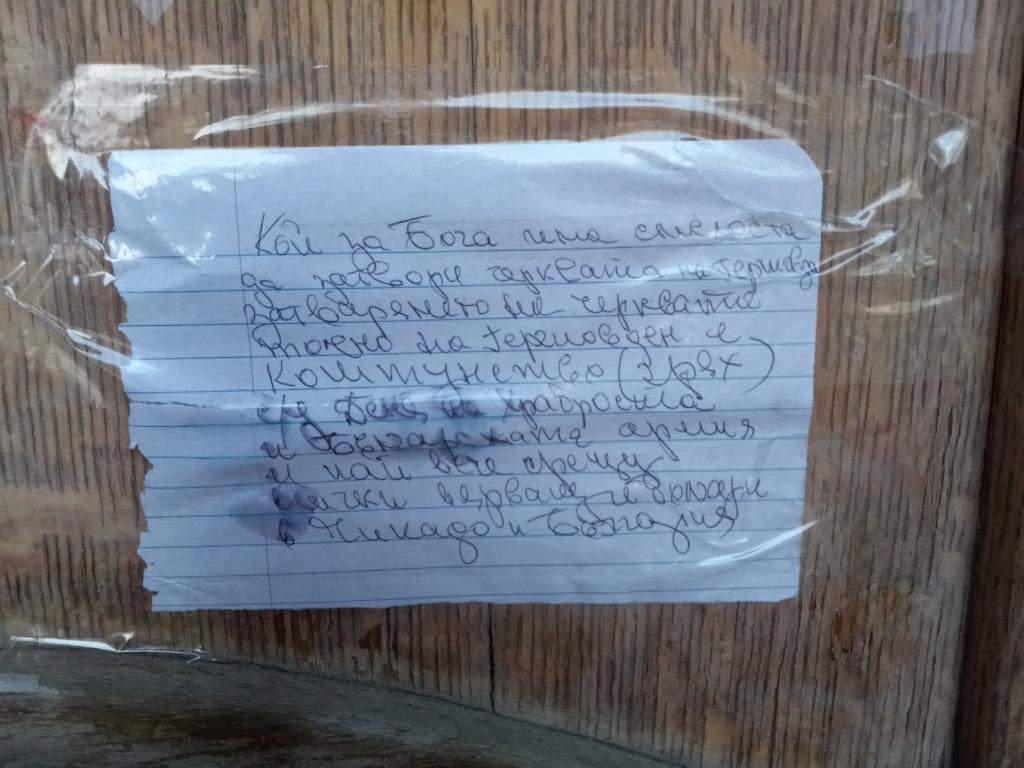 Кой за Бога има смелоста
да затвори черквата на Гергьовден
затварянето на черквата
точно на Гергьовден е
кощунство (грях)
Ден на храбростта
и Българската армия
и най вече срещу
всички вярващи българи
в Чикаго и България